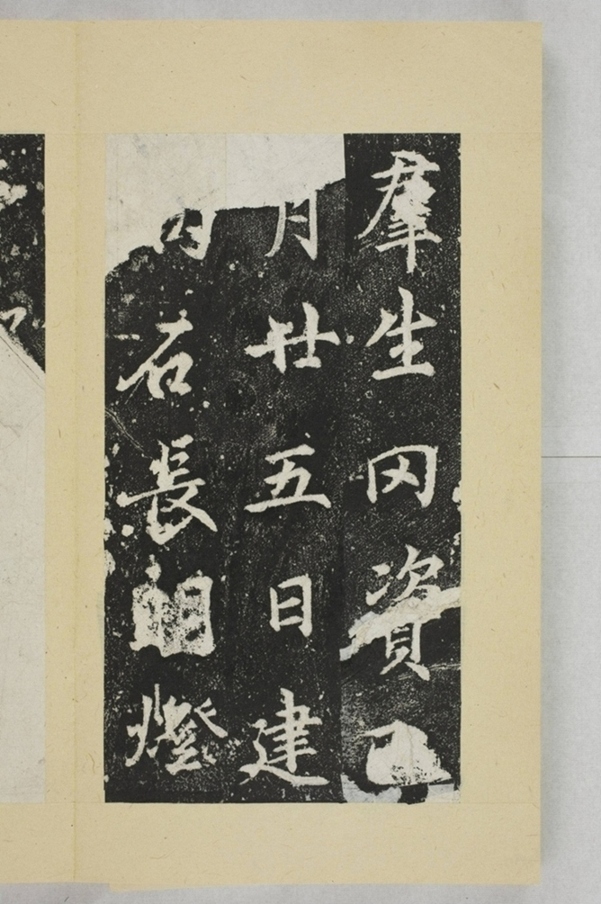 羣生冈資
月廿五日建
石長明燈